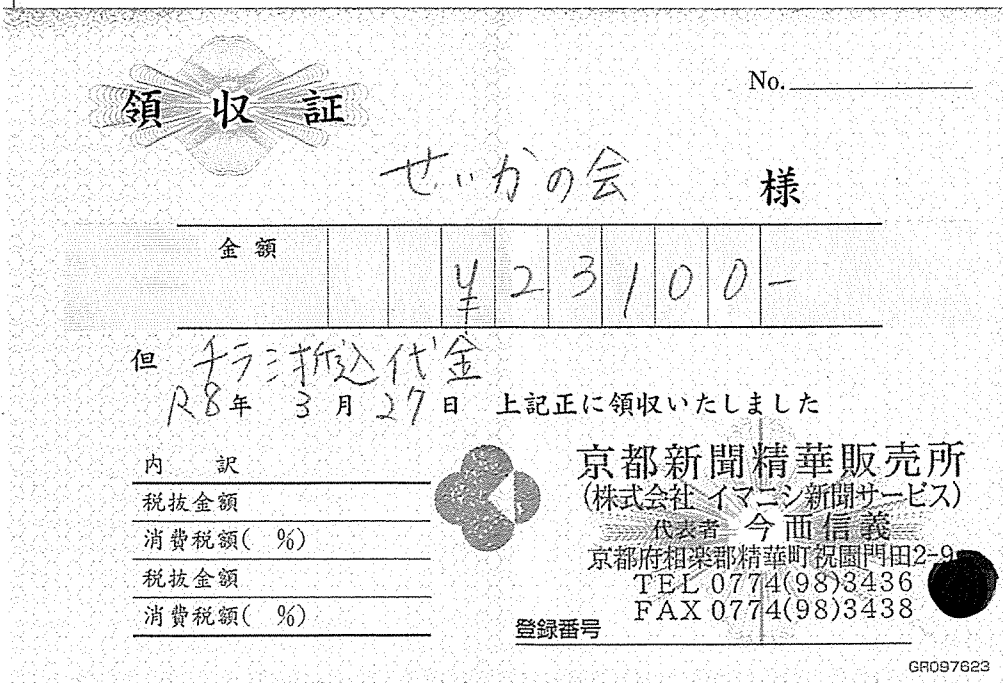 領収証
No.
せいかの会 様
金額 ¥23100-
但 チラシ折込代金
R8年 3月27日 上記正に領収いたしました
内訳
税抜金額
消費税額( %)
税抜金額
消費税額( %)
京都新聞精華販売所
(株式会社 イマニシ新聞サービス)
代表者 今西信義
京都府相楽郡精華町祝園門田2-9
TEL 0774(98)3436
FAX 0774(98)3438
登録番号
GR097623